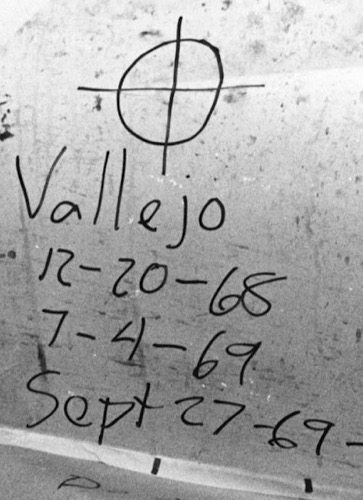 Vallejo
12-20-68
7-4-69
Sept 27-69-